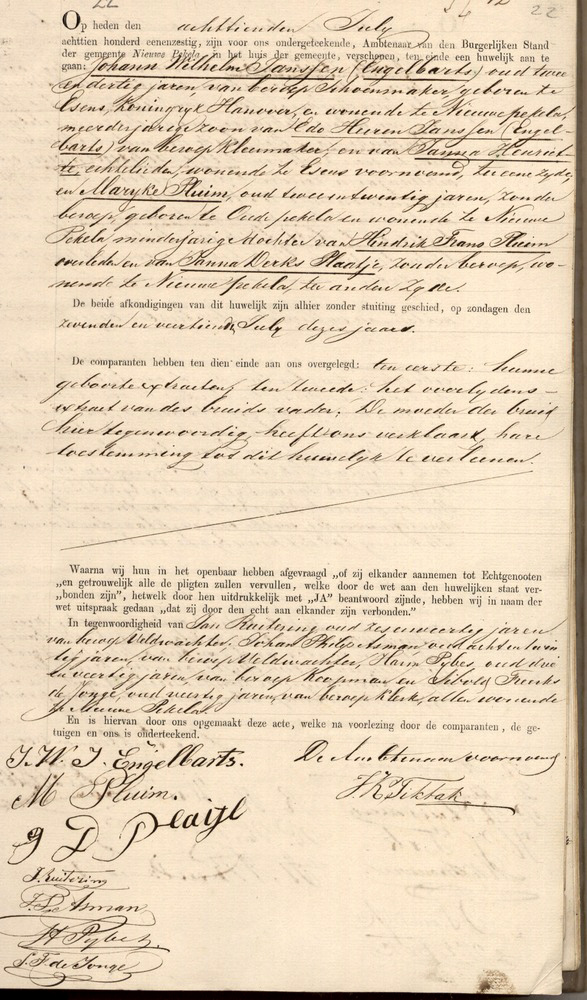 22
22
Op heden den achttienden July
achttien honderd eenenzestig, zijn voor ons ondergeteekende, Ambtenaar van den Burgerlijken Stand
der gemeente Nieuwe Pekela, in het huis der gemeente, verschenen, ten einde een huwelijk aan te
gaan: Johann Wilhelm Janssen (Engelbarts) oud twee
endertig jaren, van beroep Schoenmaker, geboren te
Esens, Koningryk Hanover, en wonende te Nieuwe pekela,
meerderjarige zoon van Edo Heeren Janssen (Engel-
barts) van beroep Kleermaker, en van Janna Henriet-
te, echtelieden, wonende te Esens voornoemd, ter eene zyde,
en Marijke Pluim, oud tweeentwintig jaren, zonder
beroep, geboren te Oude pekela en wonende te Nieuwe
Pekela, minderjarige dochter van Hendrik Frans Pluim
overleden en van Janna Derks Plaatje, zonder beroep, wo-
nende te Nieuwe pekela, ter andere zyde.
De beide afkondigingen van dit huwelijk zijn alhier zonder stuiting geschied, op zondagen den
zevenden en veertienden July dezes jaars.
De comparanten hebben ten dien einde aan ons overgelegd: ten eerste: hunne
geboorte extracten, ten tweede: het overlydens-
extract van des bruids vader; De moeder der bruid
hier tegenwoordig heeft ons verklaard, hare
toestemming tot dit huwelyk te verleenen.
Waarna wij hun in het openbaar hebben afgevraagd „of zij elkander aannemen tot Echtgenooten
„en getrouwelijk alle de pligten zullen vervullen, welke door de wet aan den huwelijken staat ver-
„bonden zijn", hetwelk door hen uitdrukkelijk met „JA" beantwoord zijnde, hebben wij in naam der
wet uitspraak gedaan „dat zij door den echt aan elkander zijn verbonden."
In tegenwoordigheid van Jan Kuitering oud zesenveertig jaren
van beroep Veldwachter, Johan Philip Asman oud achtentwin
tig jaren, van beroep Veldwachter, Harm Pybes, oud drie
en veertig jaren, van beroep Koopman en Sibold Freerks
de Jonge, oud veertig jaren, van beroep Klerk, allen wonende
te Nieuwe Pekela.
En is hiervan door ons opgemaakt deze acte, welke na voorlezing door de comparanten, de ge-
tuigen en ons is onderteekend.
J. W. J. Engelbarts. De Ambtenaar voornoemd
M Pluim. H K Tiktak
J D Plaitje
J. Kuitering
J. P. Asman
H Pybes.
S. F. de Jonge